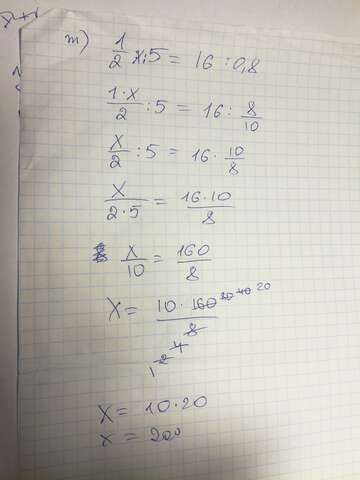 m) 1/2 x : 5 = 16 : 0,8
1·x/2 : 5 = 16 : 8/10
x/2 : 5 = 16 · 10/8
x/2·5 = 16·10/8
x/10 = 160/8
x = 10 · 160/8 80 40 20
4
2
1
x = 10·20
x = 200